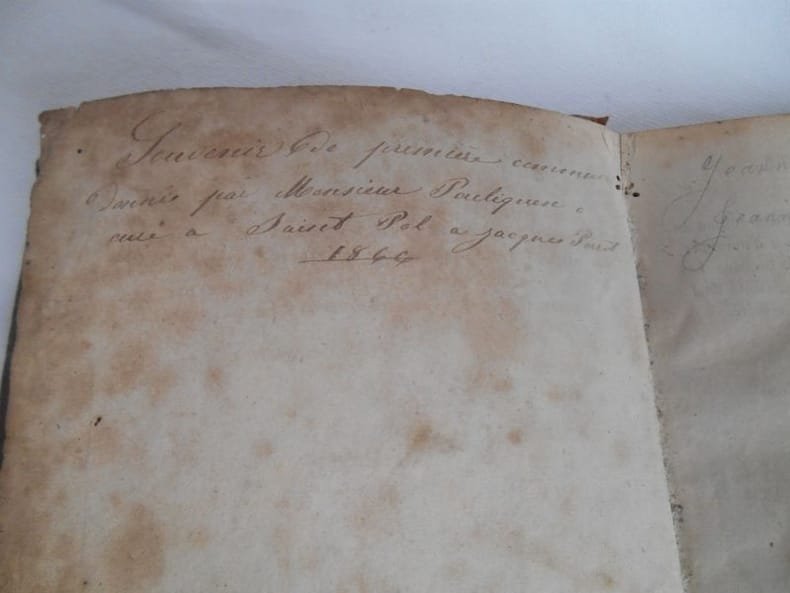 Souvenir de première commun
donnée par Monsieur Pouliquen
curé a Saint Pol a Jacques
1866
Jeann
Jeann